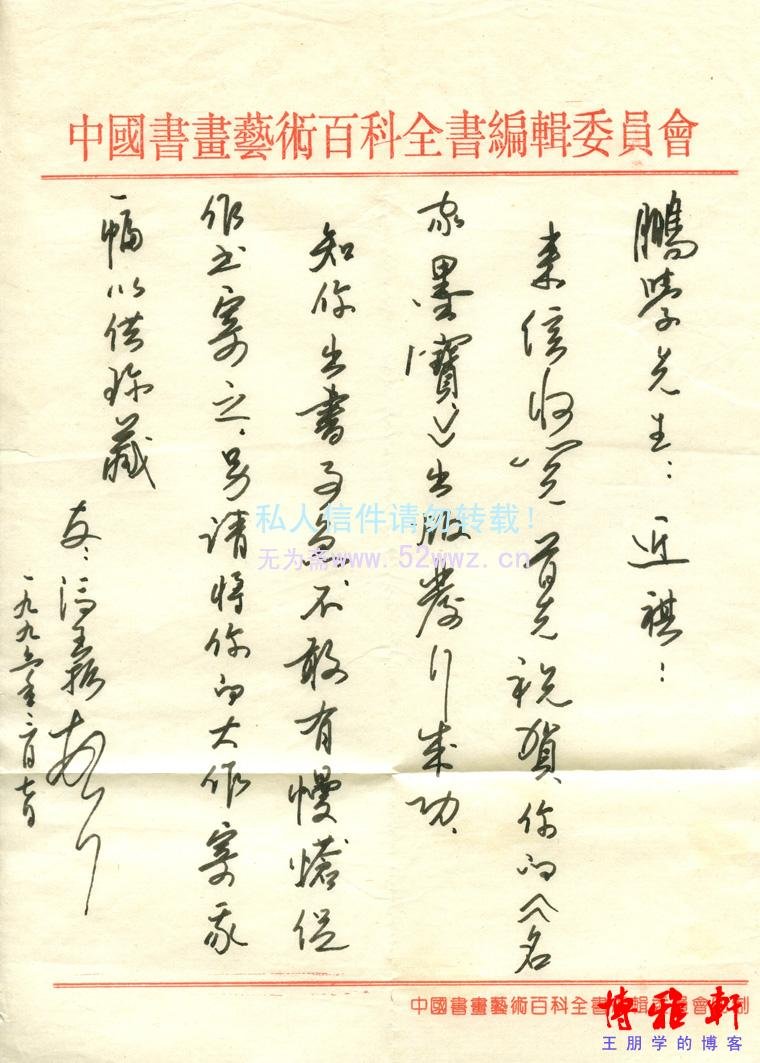 中國書畫藝術百科全書編輯委員會
鵬學先生：近祺！
来信收览首先祝賀、你的《名
家墨寶》出版發行成功、
知你出書事急、不敢有慢愴促
作书寄之、另请將你的大作寄我
一幅以供珍藏
友：冯玉振
一九九六年二月七日
私人信件请勿转载！
无为斋www.52wwz.cn
中國書畫藝術百科全書編輯委員會制
博雅軒
王朋学的博客